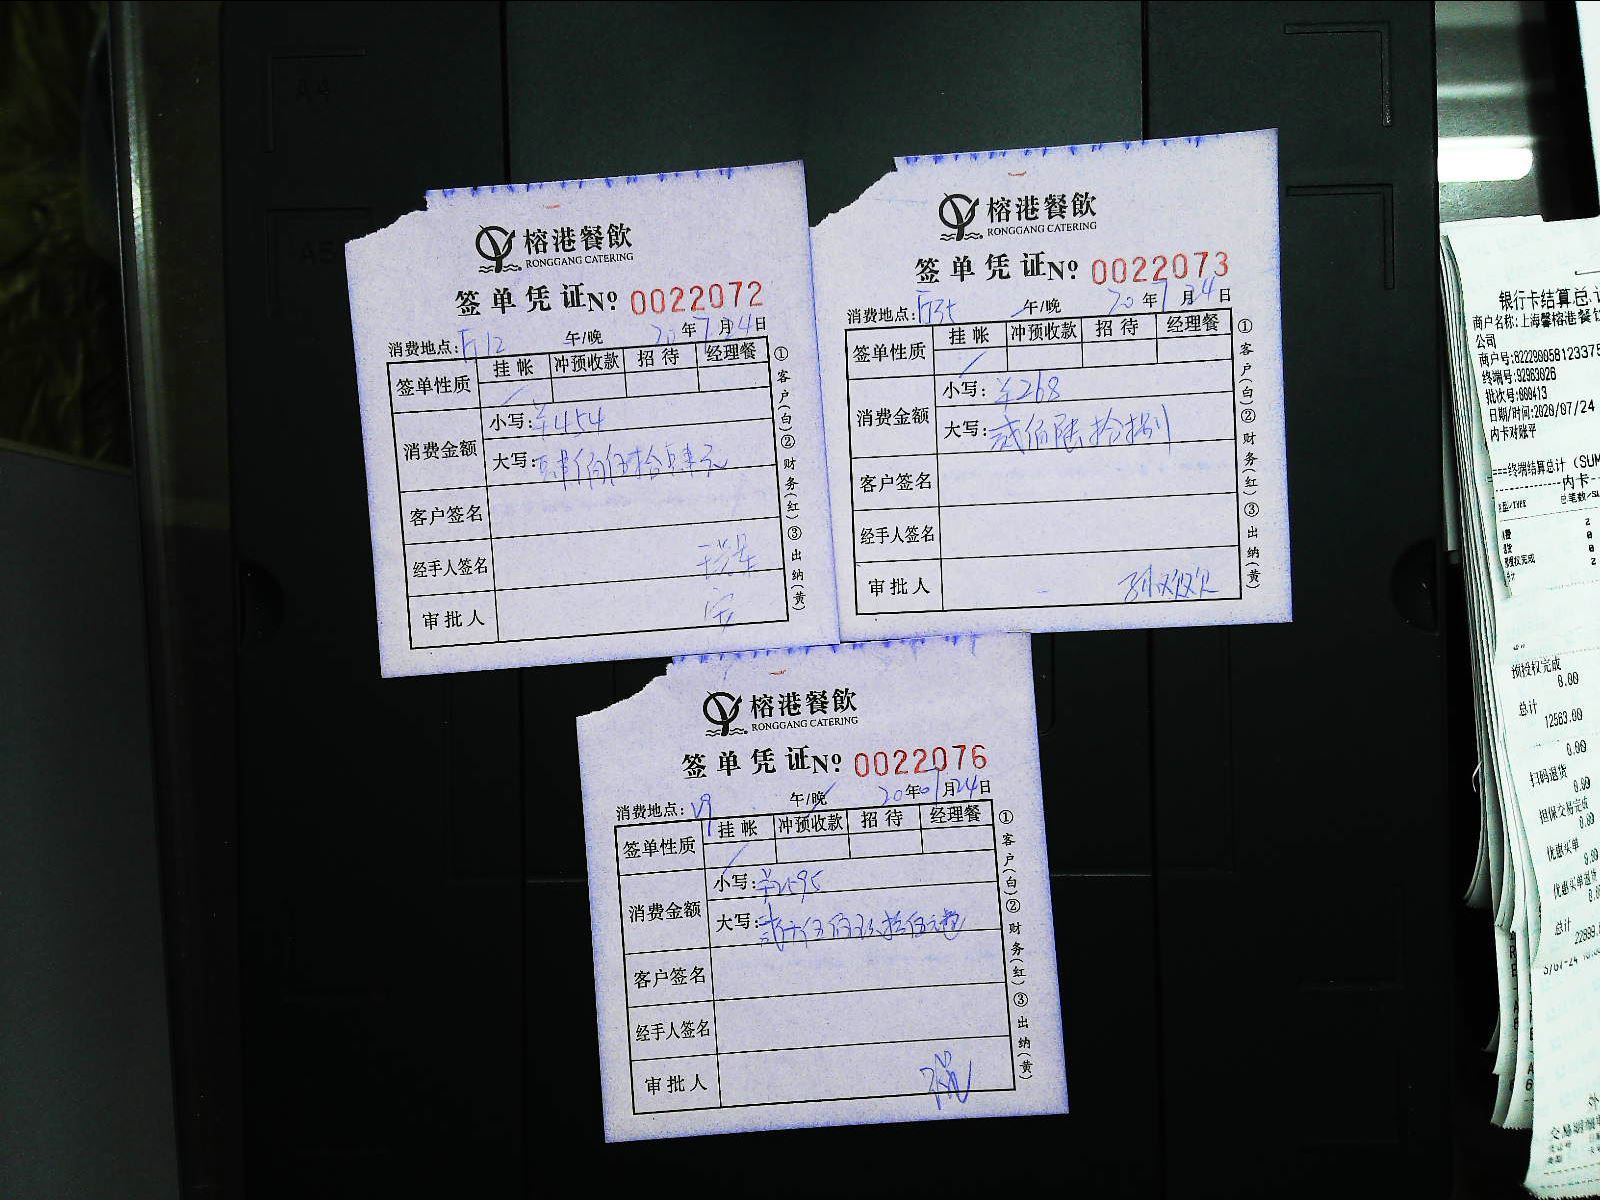 榕港餐飲
RONGGANG CATERING
签单凭证 Nº 0022072
消费地点: 午/晚 20年7月24日
签单性质 挂帐 冲预收款 招待 经理餐
消费金额
小写:¥454
大写:肆佰伍拾肆元
客户签名
经手人签名
审批人
①客户(白)②财务(红)③出纳(黄)
榕港餐飲
RONGGANG CATERING
签单凭证 Nº 0022073
消费地点: 午/晚 20年7月24日
签单性质 挂帐 冲预收款 招待 经理餐
消费金额
小写:¥268
大写:贰佰陆拾捌
客户签名
经手人签名
审批人 孙欢欢
①客户(白)②财务(红)③出纳(黄)
榕港餐飲
RONGGANG CATERING
签单凭证 Nº 0022076
消费地点:V9 午/晚 20年07月24日
签单性质 挂帐 冲预收款 招待 经理餐
消费金额
小写:¥2595
大写:贰仟伍佰玖拾伍元整
客户签名
经手人签名
审批人
①客户(白)②财务(红)③出纳(黄)
银行卡结算总
商户名称:上海馨榕港餐饮
公司
商户号:822290058123375
终端号:92963826
批次号:000413
日期/时间:2020/07/24
内卡对账平
===终端结算总计 (SUM
内卡
预授权完成
0.00
总计
12563.00
0.00
扫码退货
0.00
担保交易完成
0.00
优惠买单
0.00
优惠买单退货
总计
A4